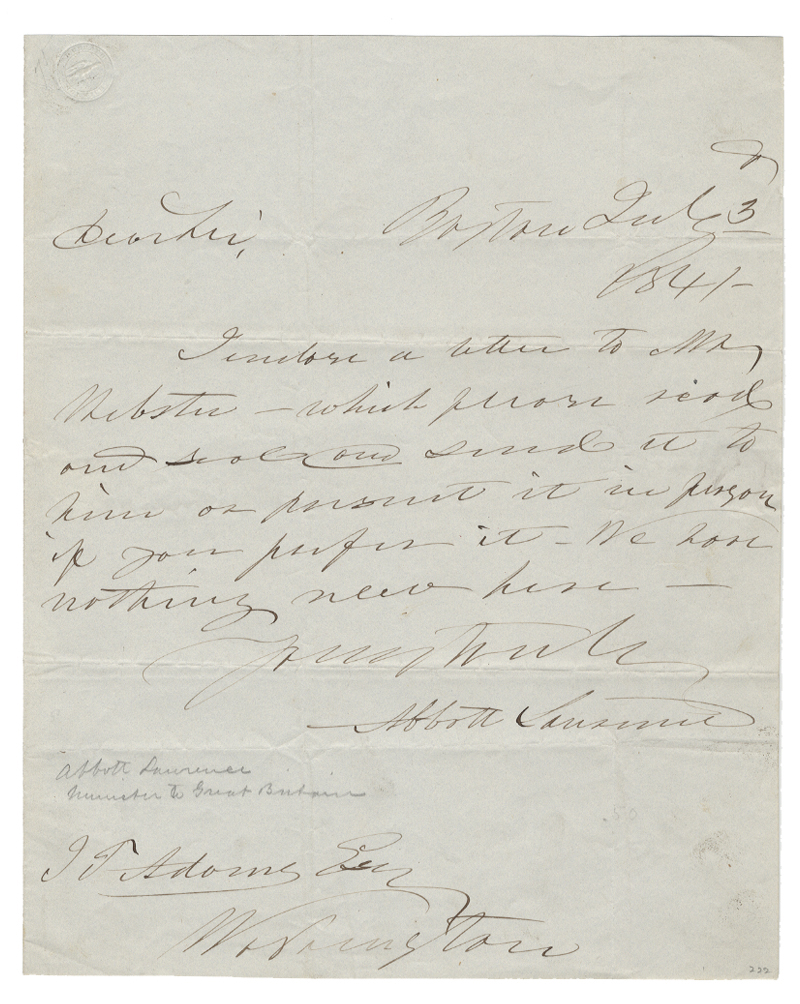 Boston July 3
Dear Sir,
1841 -
I enclose a letter to Mr
Webster - which please read
and seal and send it to
him or present it in person
if you prefer it - We have
nothing new here -
Yours truly
Abbott Lawrence
Abbott Lawrence
Minister to Great Britain
.50
Adams Esq
Washington
222